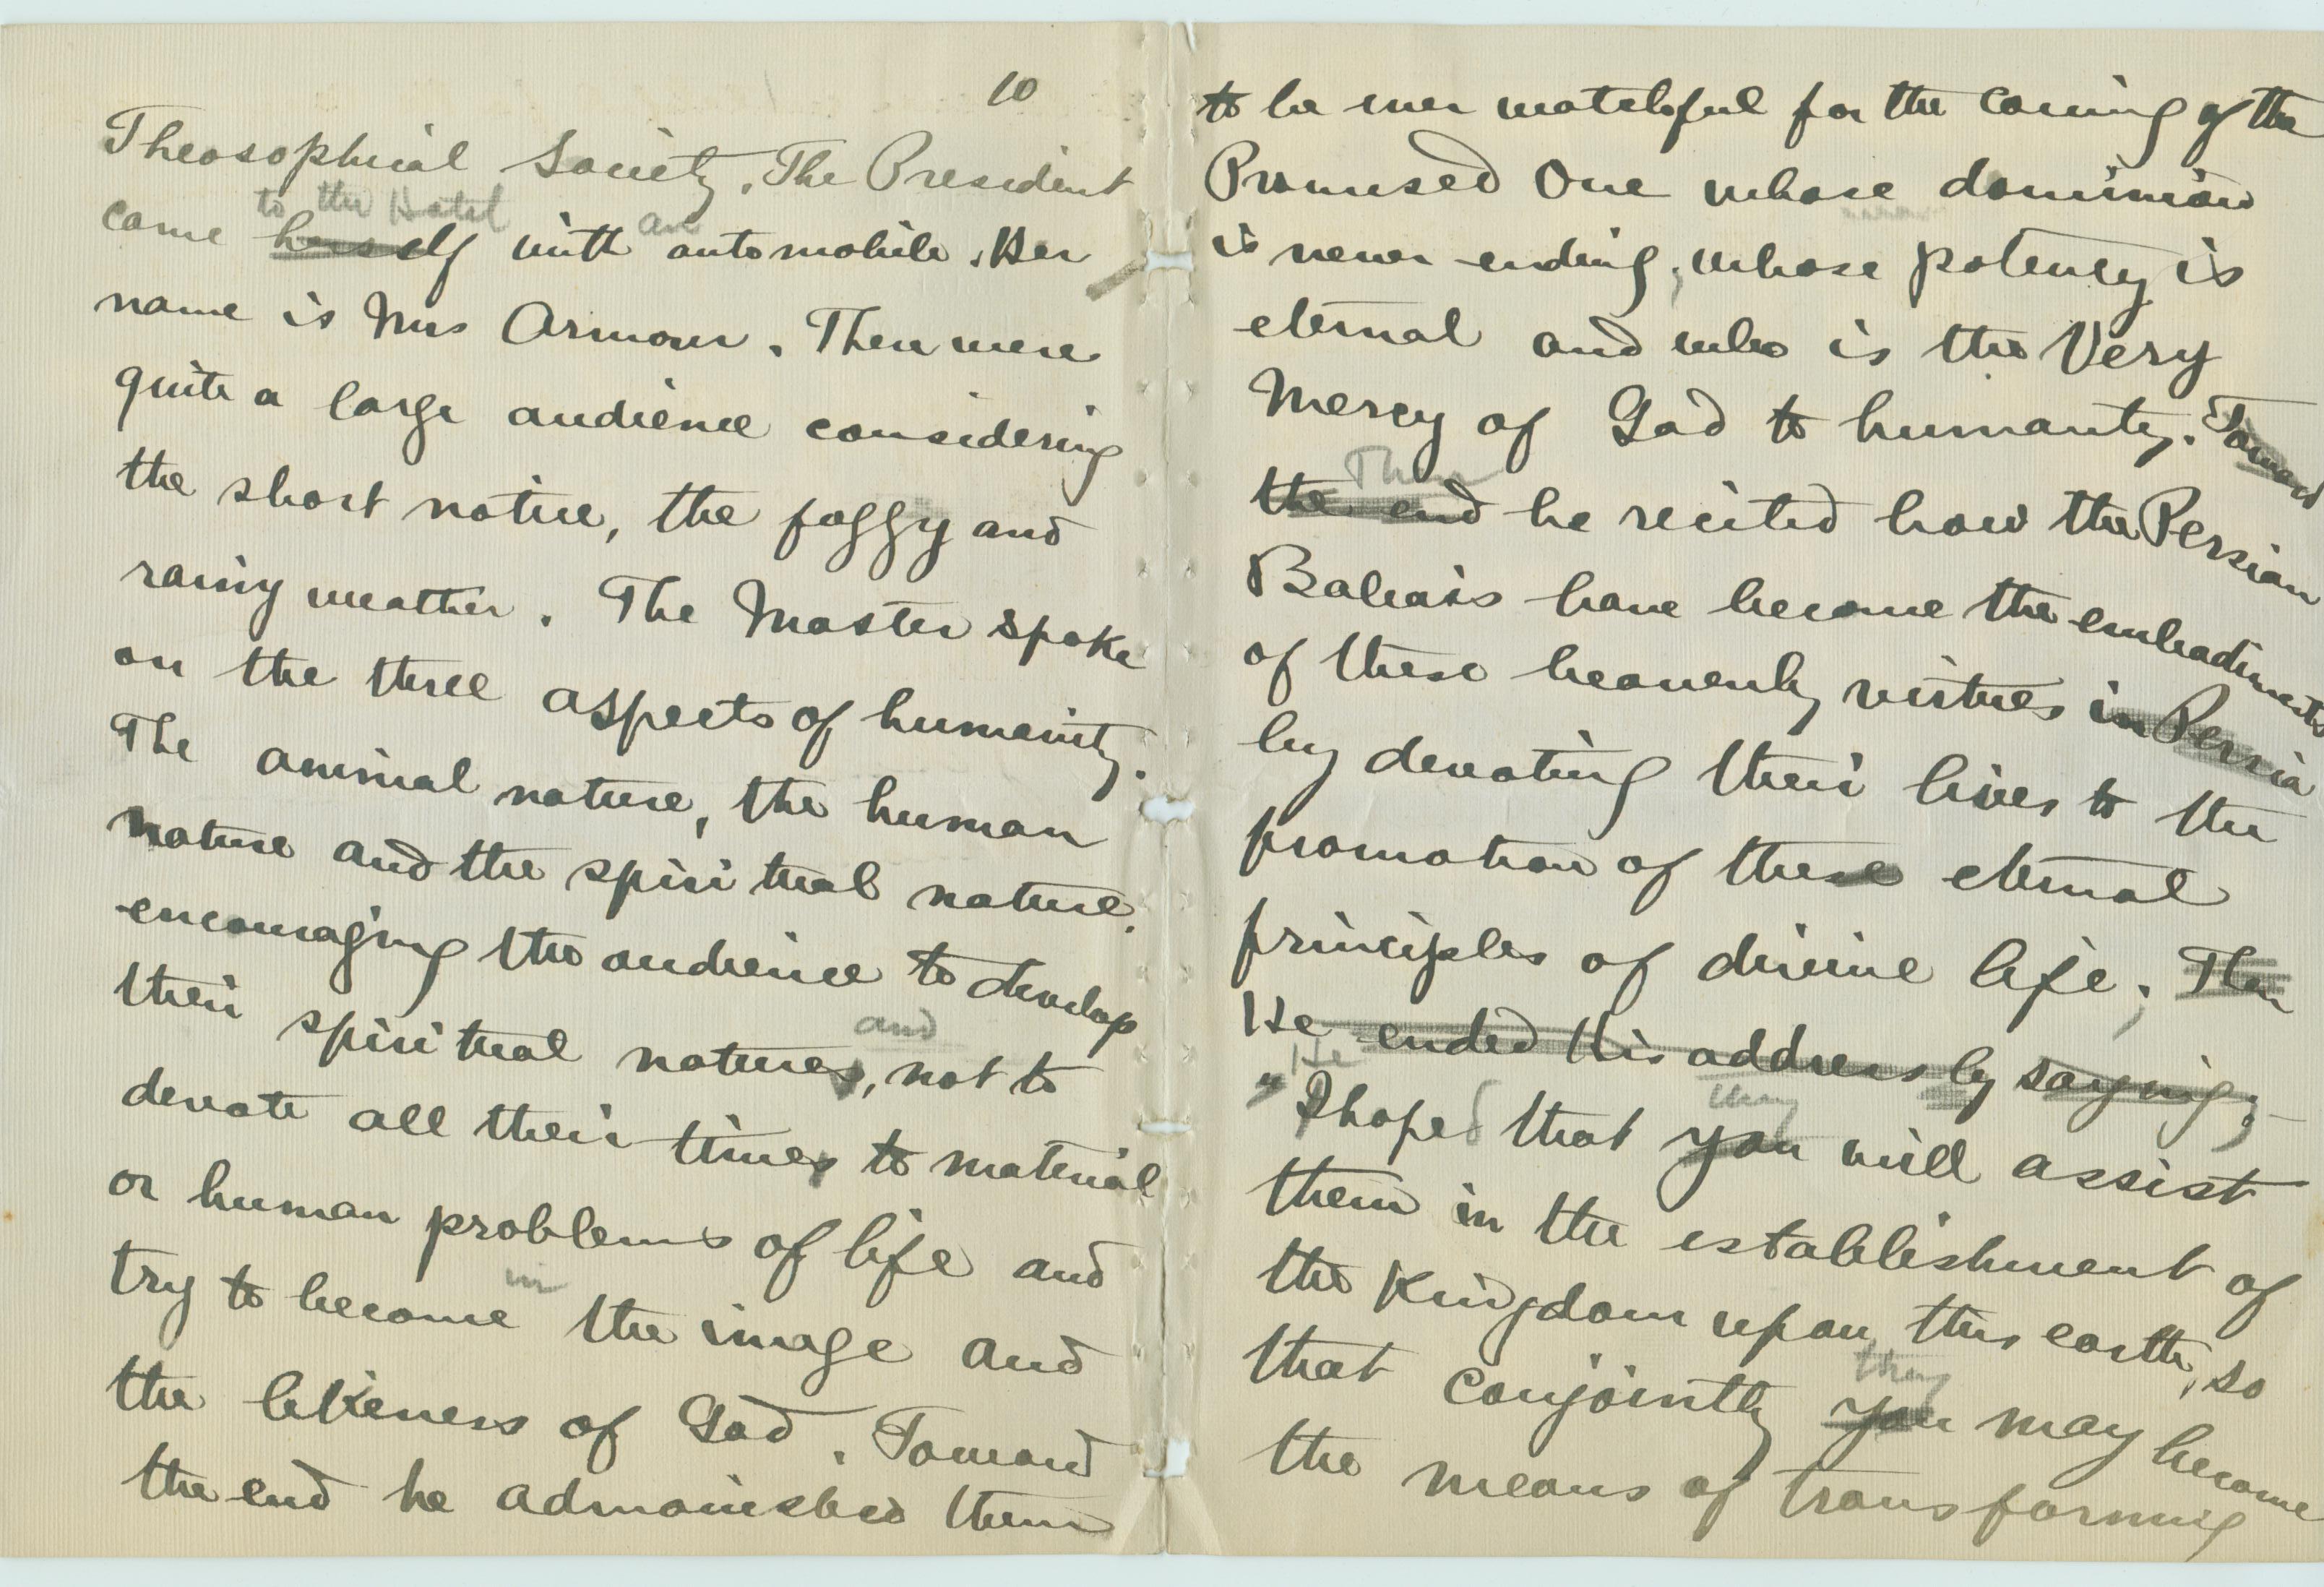 10
Theosophical Society. The President
to the Hotel an
came herself with automobile. Her
name is Mrs Armour. There were
quite a large audience considering
the short notice, the foggy and
rainy weather. The Master spoke
on the three aspects of humanity.
The animal nature, the human
nature and the spiritual nature,
encouraging the audience to develop
and
their spiritual natures, not to
devote all their times to material
or human problems of life and
in
try to become the image and
the likeness of God. Toward
the end he admonished them
to be ever watchful for the coming of the
Promised One whose dominion
is never ending, whose potency is
eternal and who is the Very
Mercy of God to humanity. Toward
Then
the end he recited how the Persian
Bahais have become the embodiments
of these heavenly virtues in Persia
by devoting their lives to the
promotion of these eternal
principles of divine life. Then
He ended his address by saying;
He they
"I hoped that you will assist
them in the establishment of
the Kingdom upon this earth, so
they
that conjointly you may become
the means of transforming